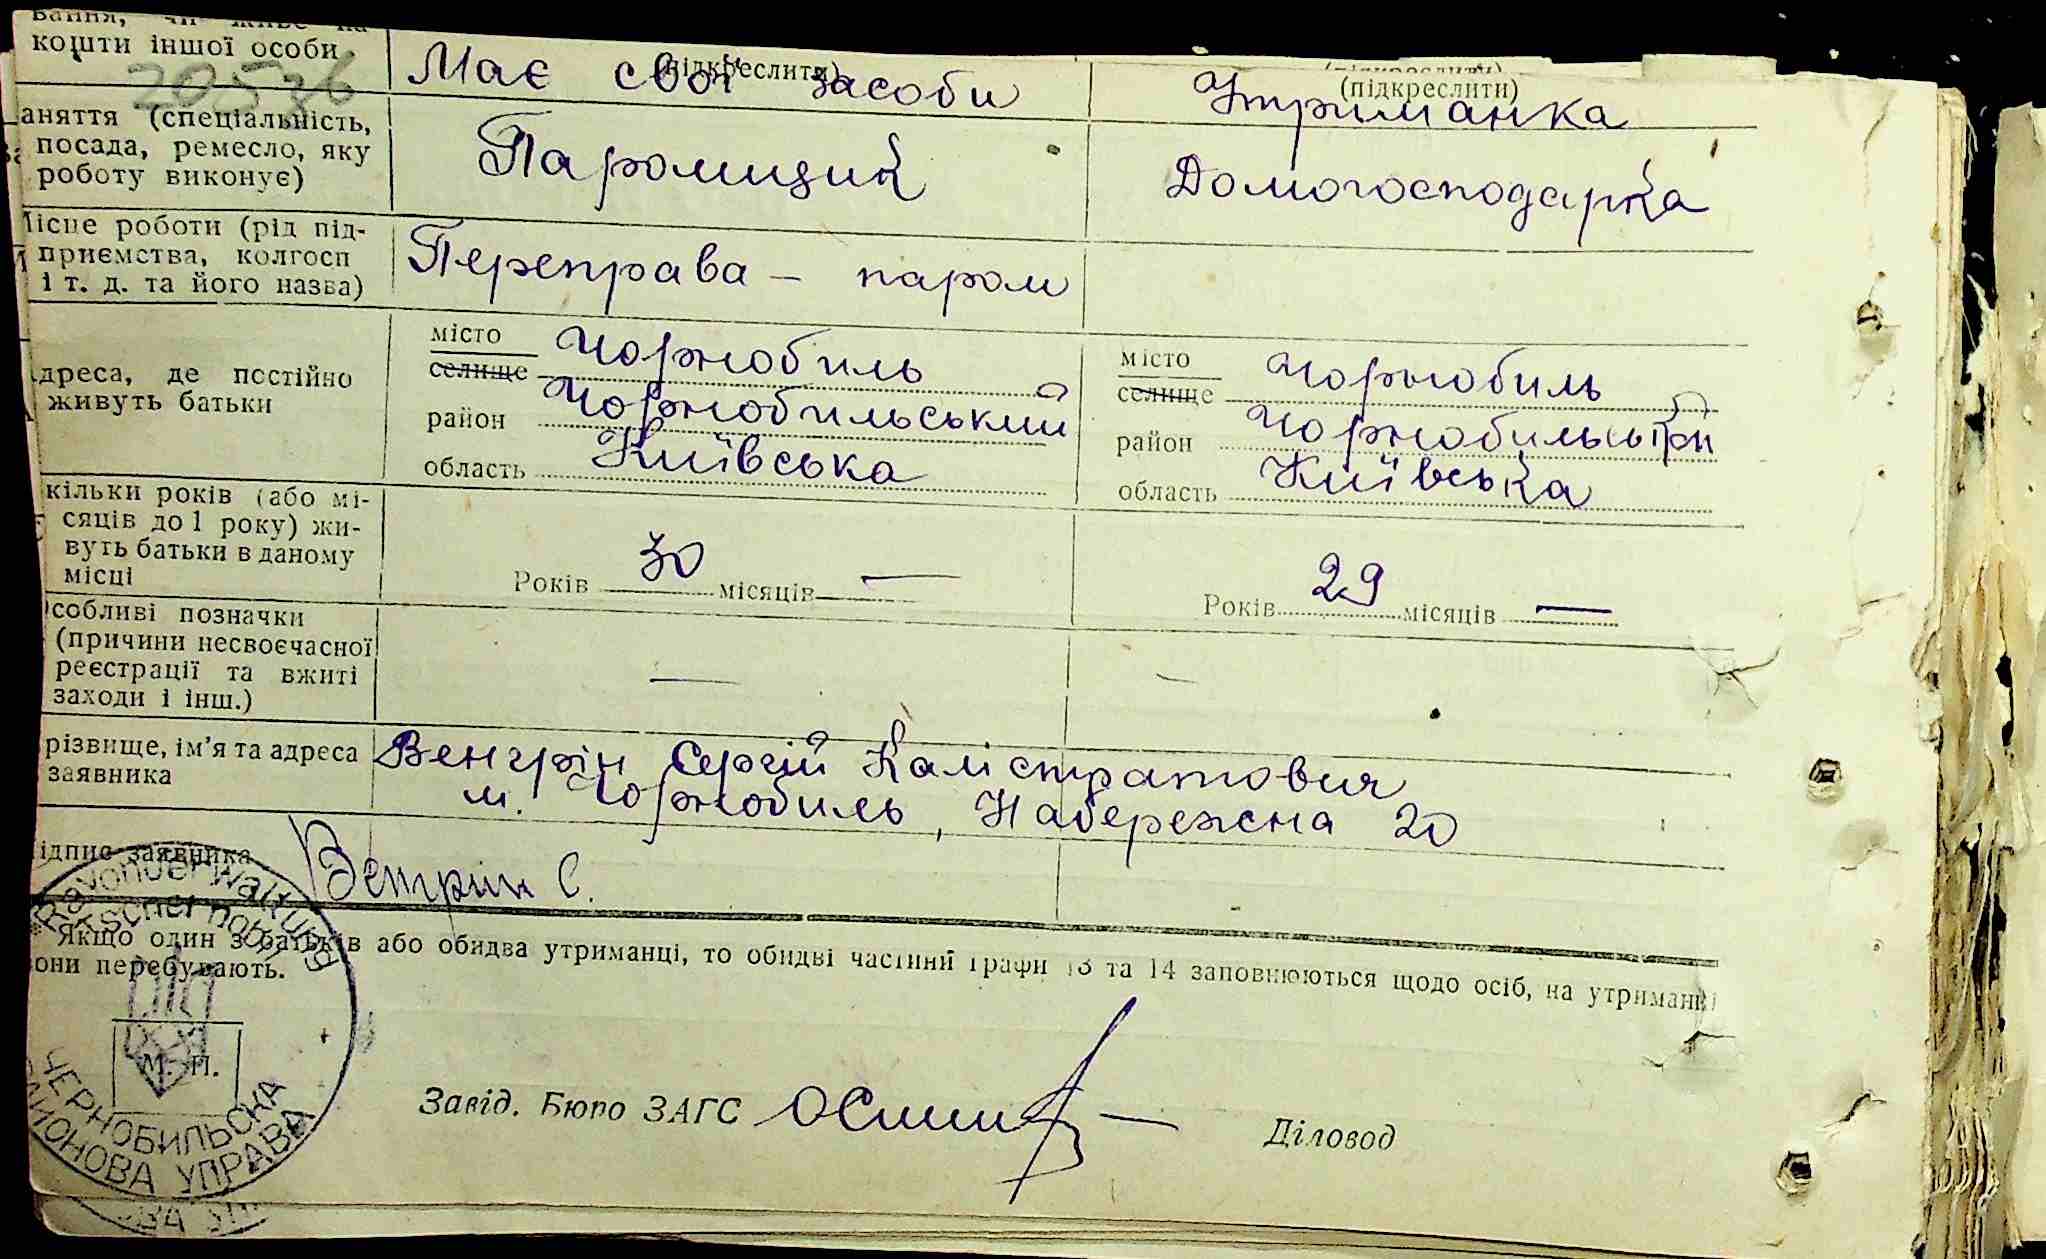 вання, чи живе на
кошти іншої особи
20536
(підкреслити)
Має свої засоби
(підкреслити)
Утриманка
аняття (спеціальність,
посада, ремесло, яку
роботу виконує)
Паромщик
Домогосподарка
Місце роботи (рід під-
приємства, колгосп
і т. д. та його назва)
Переправа – паром
дреса, де постійно
живуть батьки
місто
селище
Чорнобиль
район Чорнобильський
область Київська
місто
селище
Чорнобиль
район Чорнобильський
область Київська
кільки років (або мі-
сяців до 1 року) жи-
вуть батьки в даному
місці
Років 30 місяців —
Років 29 місяців —
собливі позначки
(причини несвоєчасної
реєстрації та вжиті
заходи і інш.)
—
—
різвище, ім'я та адреса
заявника
Венгрін Сергій Калістратович
м. Чорнобиль, Набережна 20
ідпис заявника
Венгрин С.
Rayonderwaltung
Tschernobil
Якщо один з батьків або обидва утриманці, то обидві частини графи 13 та 14 заповнюються щодо осіб, на утриманні
они перебувають.
М. П.
ЧЕРНОБИЛЬСКА
ЙОНОВА УПРАВА
Завід. Бюро ЗАГС
Діловод